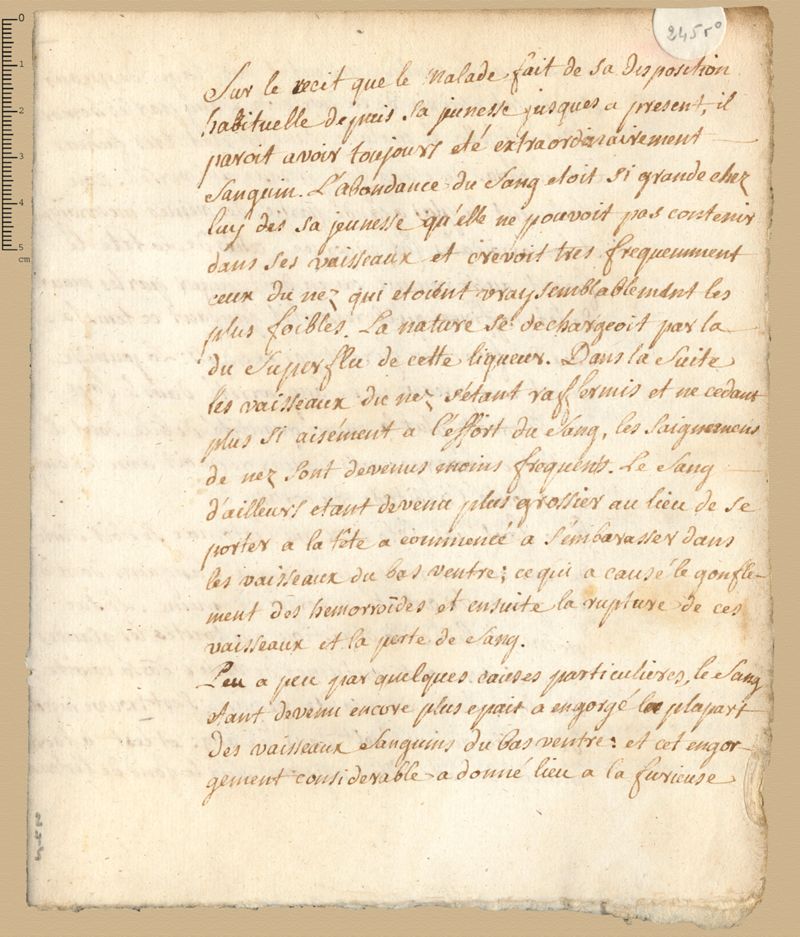 245 r°
Sur le recit que le Malade fait de sa disposition
habituelle depuis sa jeunesse jusques a present, il
paroit avoir toujours eté extraordinairement
Sanguin. L'abondance du Sang etoit si grande chez
luy des sa jeunesse qu'elle ne pouvoit pas contenir
dans ses vaisseaux et crevoit tres frequemment
ceux du nez qui etoient vraysemblablement les
plus foibles. La nature se dechargeoit par la
du Superflu de cette liqueur. Dans la Suite
les vaisseaux du nez s'étant raffermis et ne cedant
plus si aisément a l'éffort du Sang, les saignemens
de nez sont devenus moins frequents. Le Sang
d'ailleurs etant devenu plus grossier au lieu de se
porter a la tête a commencé a s'émbarasser dans
les vaisseaux du bas ventre; ce qui a causé le gonfle-
ment des hemorroïdes et ensuite la rupture de ces
vaisseaux et la perte de Sang.
Peu a peu par quelques causes particulieres, le Sang
etant devenu encore plus epais a engorgé la plupart
des vaisseaux Sanguins du bas ventre: et cet engor-
gement considerable a donné lieu a la furieuse
0
1
2
3
4
5
cm